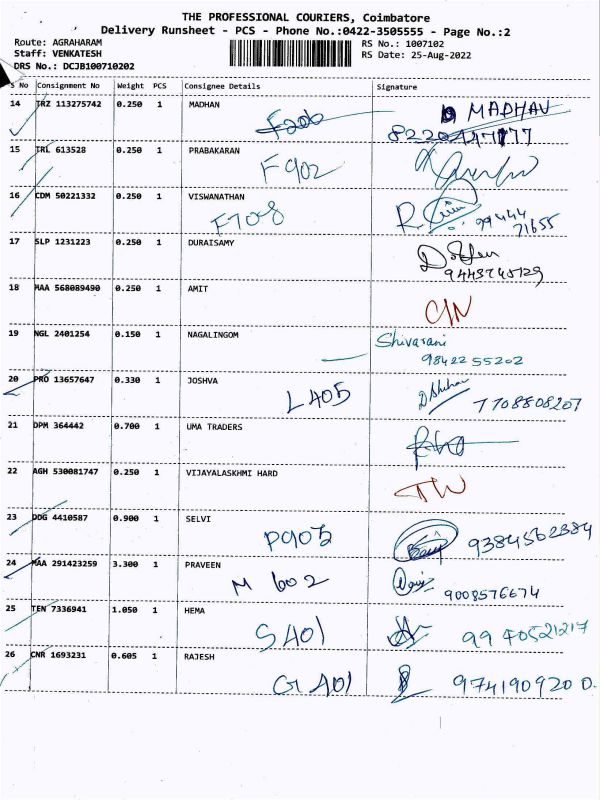 THE PROFESSIONAL COURIERS, Coimbatore
Delivery Runsheet - PCS - Phone No.:0422-3505555 - Page No.:2
Route: AGRAHARAM
RS No.: 1007102
Staff: VENKATESH
RS Date: 25-Aug-2022
DRS No.: DCJB100710202
S No Consignment No Weight PCS Consignee Details Signature
14 TRZ 113275742 0.250 1 MADHAN MADHAV
F206 8220447777
15 TRL 613528 0.250 1 PRABAKARAN
F902
16 CDM 50221332 0.250 1 VISWANATHAN
F708 99444
71655
17 SLP 1231223 0.250 1 DURAISAMY
9443745129
18 MAA 568089490 0.250 1 AMIT
C/N
19 NGL 2401254 0.150 1 NAGALINGOM Shivarani
9842255202
20 PRO 13657647 0.330 1 JOSHVA
L405 7708808207
21 DPM 364442 0.700 1 UMA TRADERS
22 AGH 530081747 0.250 1 VIJAYALASKHMI HARD
TW
23 DDG 4410587 0.900 1 SELVI
P903 9384562384
24 MAA 291423259 3.300 1 PRAVEEN
M 602 9008576674
25 TEN 7336941 1.050 1 HEMA
S401 9940521217
26 CNR 1693231 0.605 1 RAJESH
G1401 9741909200.